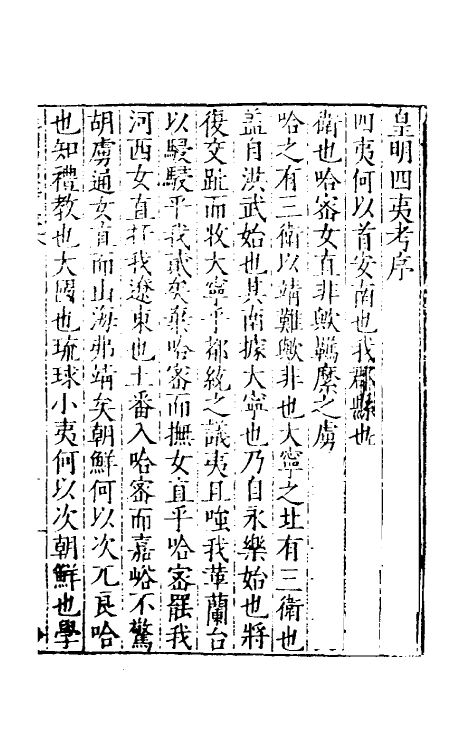 皇明四夷考序
四夷何以首安南也我郡縣也
衛也哈密女直非歟羈縻之虜
哈之有三衛以靖難歟非也大寧之北有三衛也
蓋自洪武始也其南據大寧也乃自永樂始也將
復交趾而牧大寧乎都統之議夷且嗤我革蘭台
以駸駸乎我貳矣棄哈密而撫女直乎哈密罷我
河西女直扞我遼東也土番入哈密而嘉峪不驚
胡虜通女直而山海弗靖矣朝鮮何以次兀良哈
也知禮教也大國也琉球小夷何以次朝鮮也學